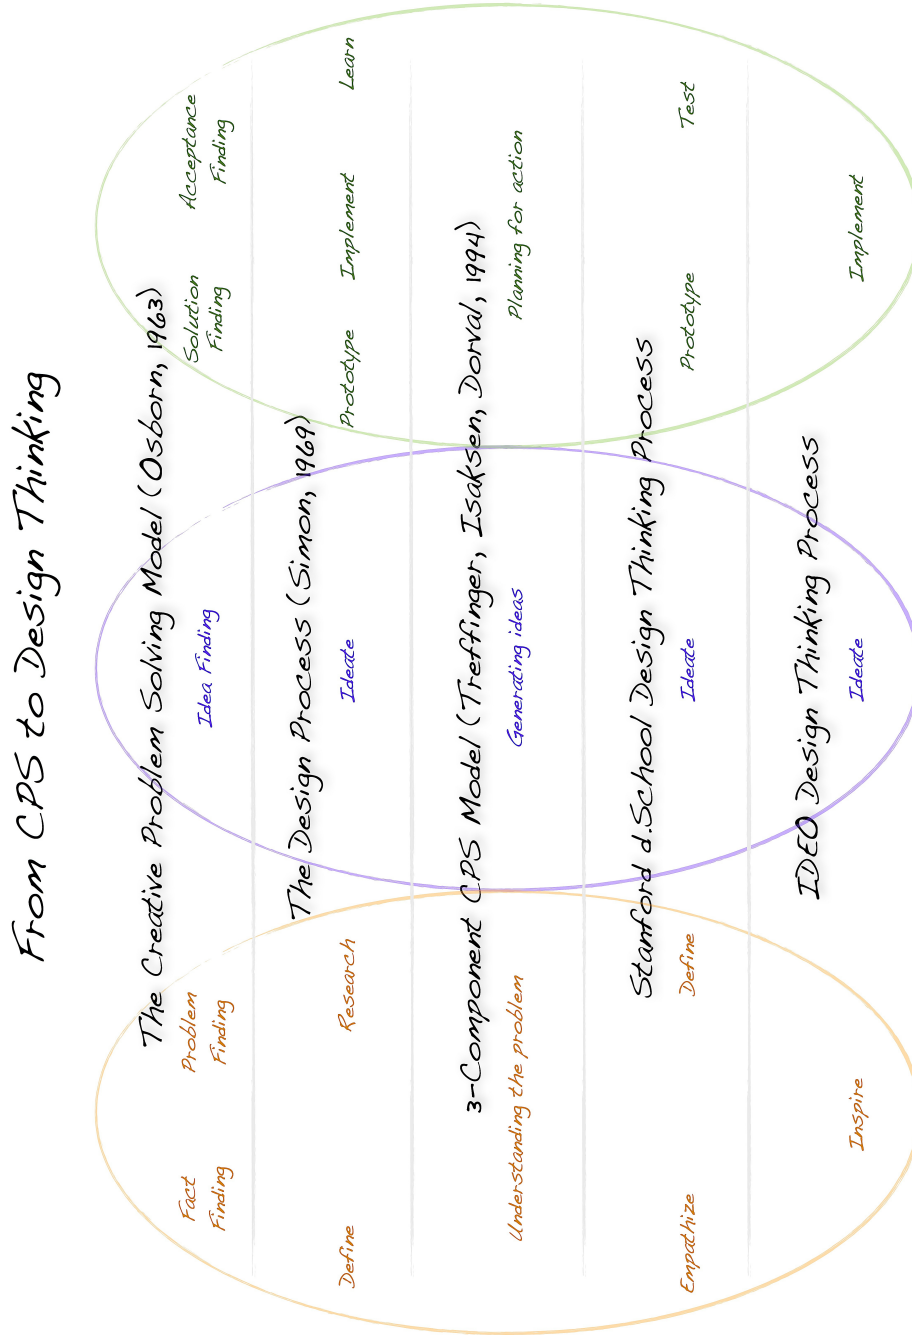 From CPS to Design Thinking
The Creative Problem Solving Model (Osborn, 1963)
Fact
Finding
Problem
Finding
Idea Finding
Solution
Finding
Acceptance
Finding
The Design Process (Simon, 1969)
Define
Research
Ideate
Prototype
Implement
Learn
3-Component CPS Model (Treffinger, Isaksen, Dorval, 1994)
Understanding the problem
Generating ideas
Planning for action
Stanford d.School Design Thinking Process
Empathize
Define
Ideate
Prototype
Test
IDEO Design Thinking Process
Inspire
Ideate
Implement